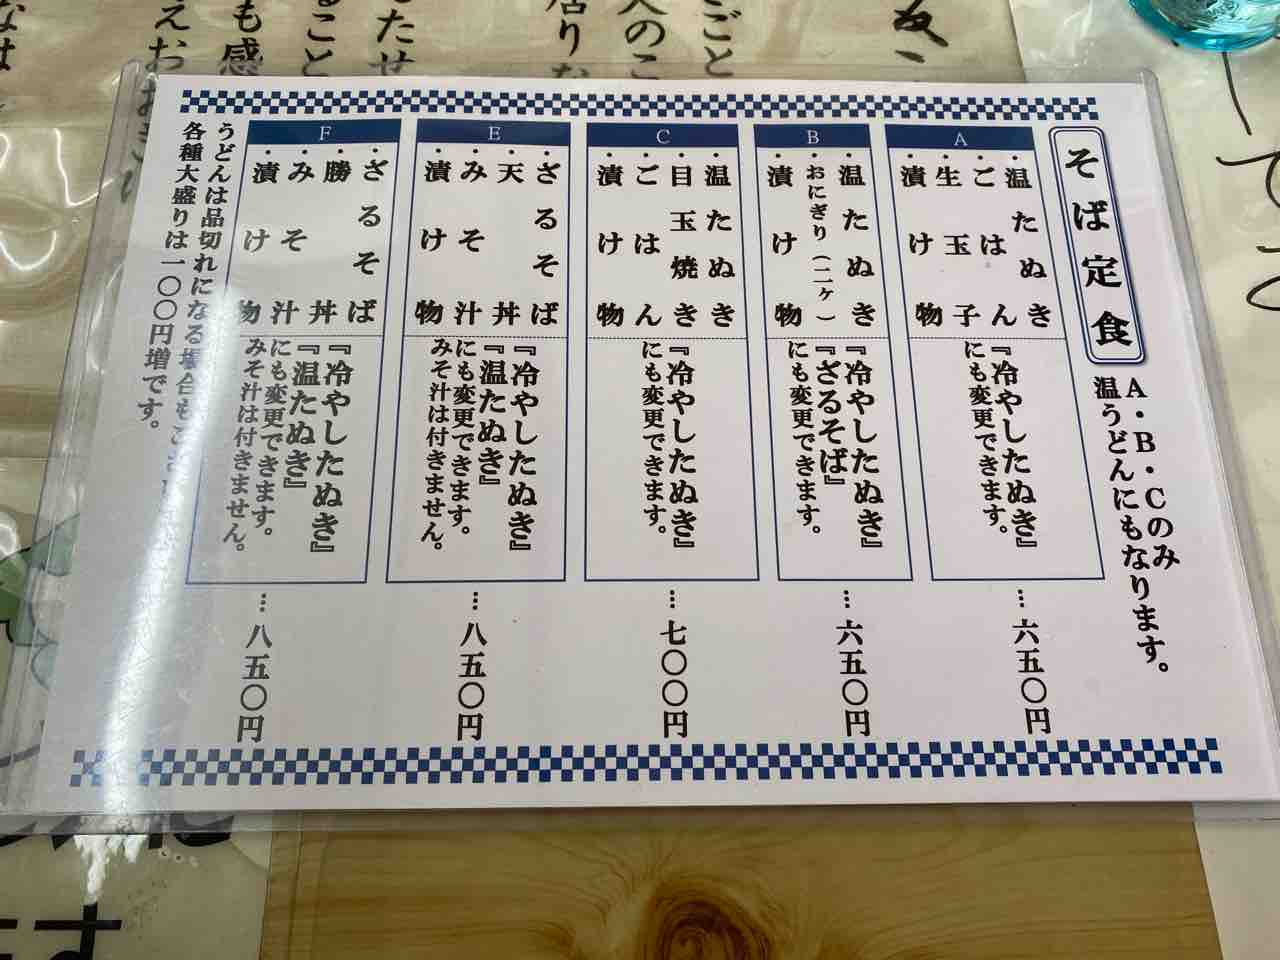 そば定食
A・B・Cのみ
温うどんにもなります。
A
・温たぬき
・ごはん
・生玉子
・漬け物
『冷やしたぬき』
にも変更できます。
…六五〇円
B
・温たぬき
・おにぎり(二ヶ)
・漬け物
『冷やしたぬき』
『ざるそば』
にも変更できます。
…六五〇円
C
・温たぬき
・目玉焼き
・ごはん
・漬け物
『冷やしたぬき』
にも変更できます。
…七〇〇円
E
・ざるそば
・天丼
・みそ汁
・漬け物
『冷やしたぬき』
『温たぬき』
にも変更できます。
みそ汁は付きません。
…八五〇円
F
・ざるそば
・勝丼
・みそ汁
・漬け物
『冷やしたぬき』
『温たぬき』
にも変更できます。
みそ汁は付きません。
…八五〇円
うどんは品切れになる場合も
各種大盛りは一〇〇円増です。